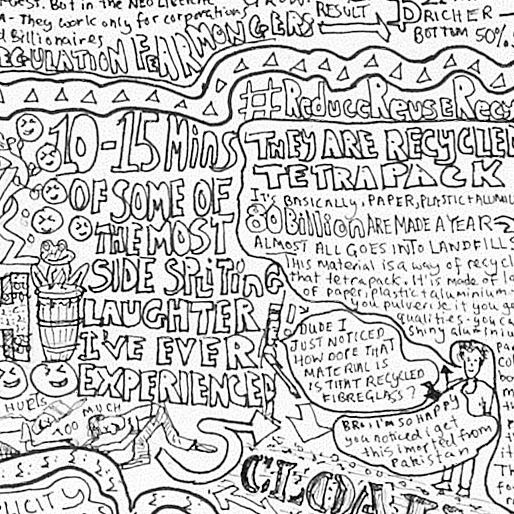 But in the Neo Liberal
They work only for corporations
d Billionaires
REGULATION FEARMONGERS
RESULT
RICHER
BOTTOM 50%.
#ReduceReuseRecy
10-15 Mins
OF SOME OF
THE MOST
SIDE SPLITING
LAUGHTER
I'VE EVER
EXPERIENCED
THEY ARE RECYCLED
TETRAPACK
IT'S BASICALLY, PAPER, PLASTIC+ALUMIU
80 Billion ARE MADE A YEAR
ALMOST ALL GOES INTO LANDFILLS
This material is a way of recycl
that tetrapack. It is made of
of paper, plastic+aluminium
you pulver it you ge
qualities
shiny aluminiu
DUDE I
JUST NOTICED
HOW DOPE THAT
MATERIAL IS
IS THAT RECYCLED
FIBREGLASS?
BRO I'M SO HAPPY
you noticed I get
this imported from
Pakistan
HUELS
MUCH
TOO
PLICITY